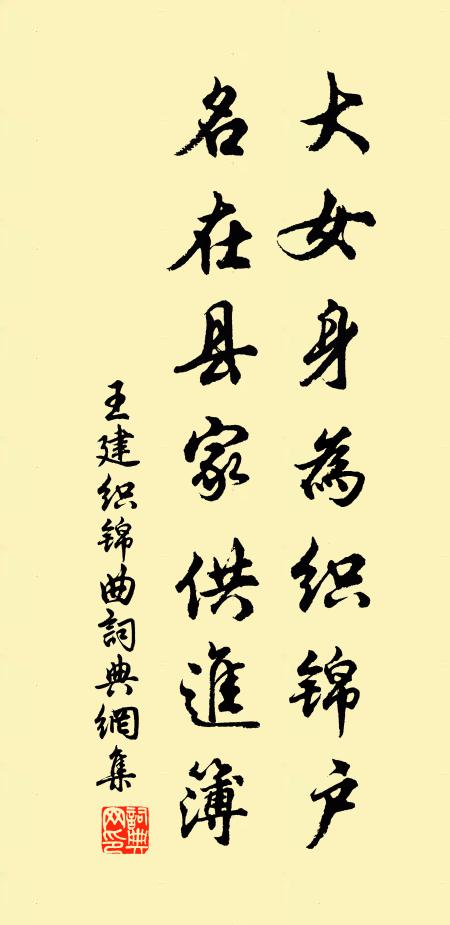 大女身為织锦户
名在县家供進簿
王建织锦曲詞典網集
詞典网印